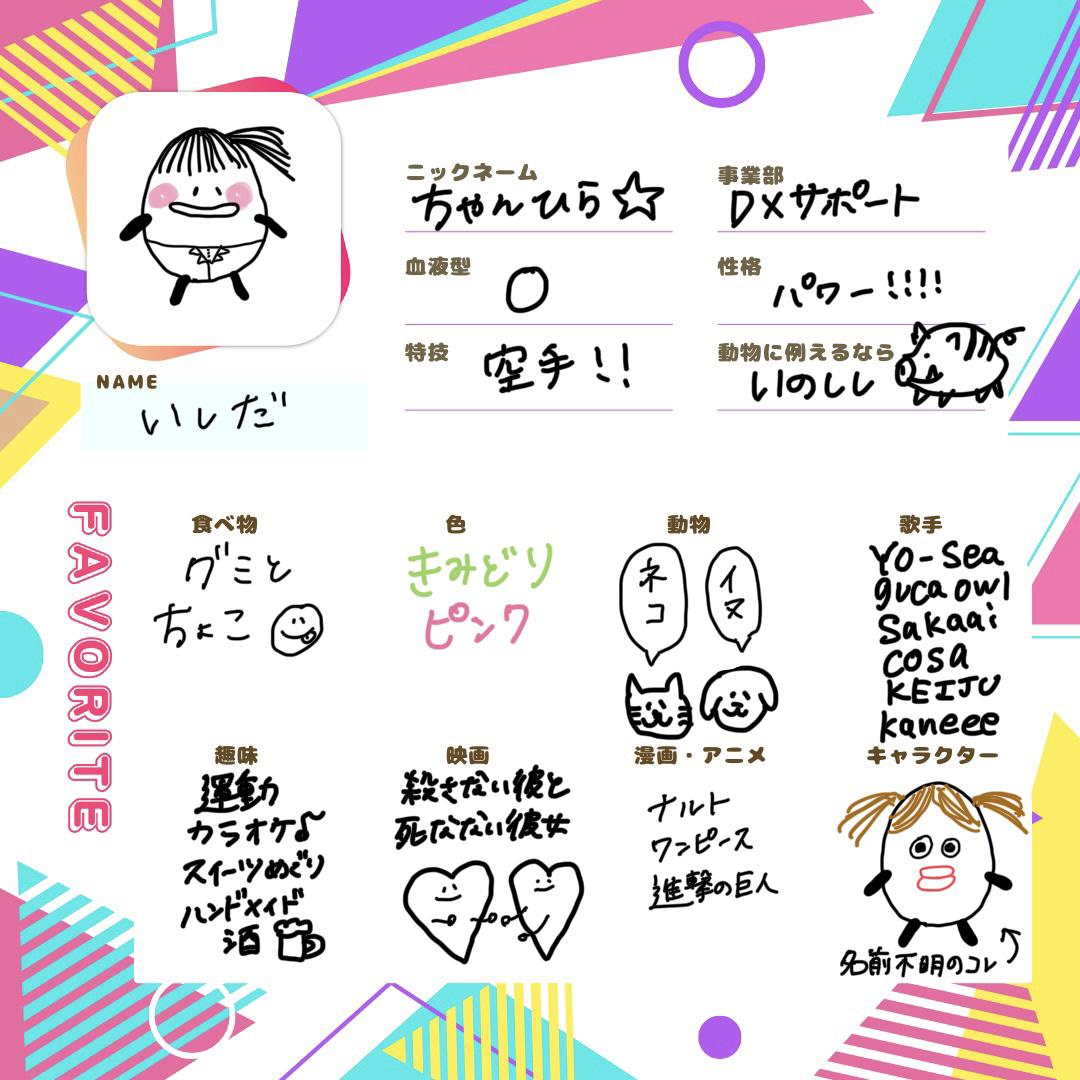 ニックネーム
ちゃんひら☆
事業部
DXサポート
血液型
O
性格
パワー!!!!
特技
空手!!
動物に例えるなら
いのしし
NAME
いしだ
FAVORITE
食べ物
グミと
ちょこ
色
きみどり
ピンク
動物
ネコ
イヌ
歌手
YO-Sea
guca owl
Sakaai
COSA
KEIJU
kaneee
趣味
運動
カラオケ♪
スイーツめぐり
ハンドメイド
酒
映画
殺さない彼と
死なない彼女
漫画・アニメ
ナルト
ワンピース
進撃の巨人
キャラクター
名前不明のコレ